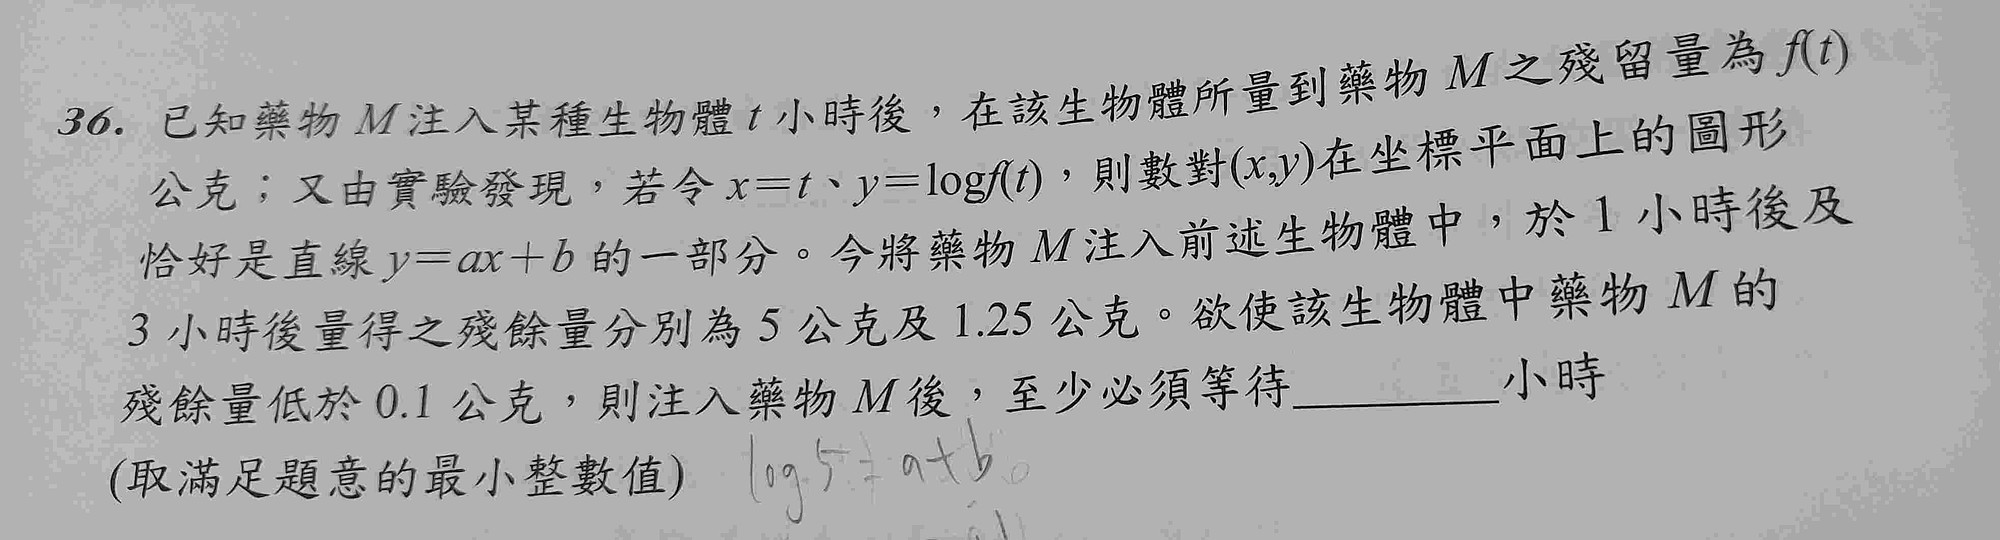 36. 已知藥物 M 注入某種生物體 t 小時後，在該生物體所量到藥物 M 之殘留量為 f(t)
公克；又由實驗發現，若令 x＝t、y＝logf(t)，則數對(x,y)在坐標平面上的圖形
恰好是直線 y＝ax＋b 的一部分。今將藥物 M 注入前述生物體中，於 1 小時後及
3 小時後量得之殘餘量分別為 5 公克及 1.25 公克。欲使該生物體中藥物 M 的
殘餘量低於 0.1 公克，則注入藥物 M 後，至少必須等待________小時
(取滿足題意的最小整數值) log5=a+b